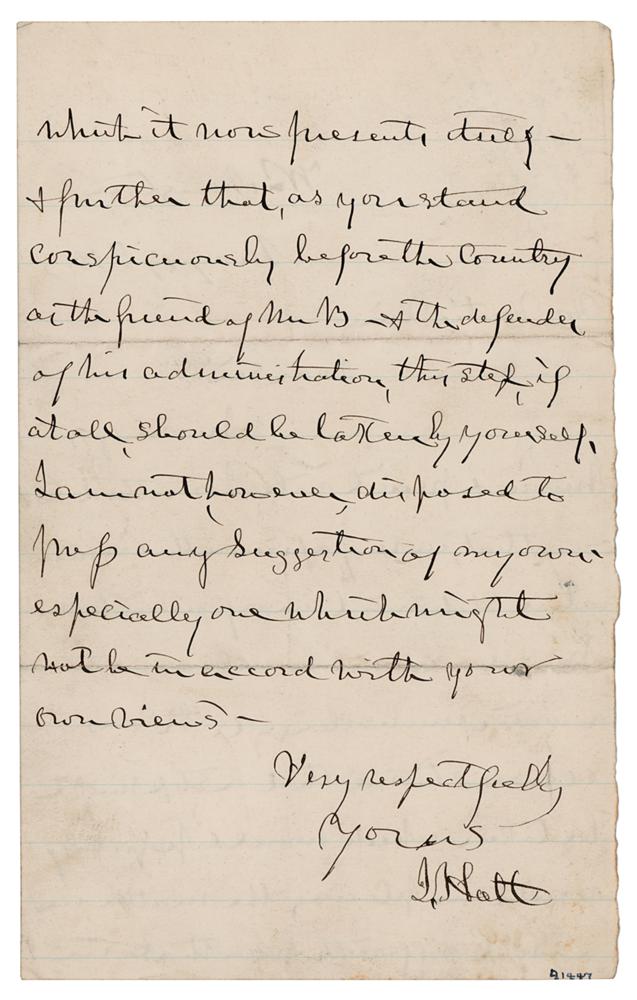 which it now presents itself —
& further that, as you stand
conspicuously before the Country
as the friend of Mr B — & the defender
of his administration, this step, if
at all, should be taken by yourself.
I am not, however, disposed to
press any suggestion of my own
especially one which might
not be in accord with your
own views —
Very respectfully
Yours
J. Holt